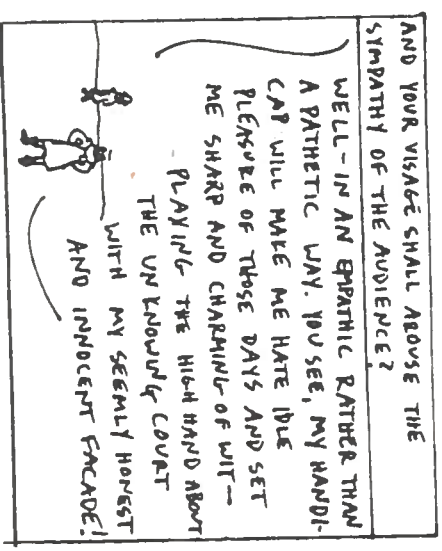 AND YOUR VISAGE SHALL AROUSE THE
SYMPATHY OF THE AUDIENCE?
WELL - IN AN EMPATHIC RATHER THAN
A PATHETIC WAY. YOU SEE, MY HANDI-
CAP WILL MAKE ME HATE IDLE
PLEASURE OF THOSE DAYS AND SET
ME SHARP AND CHARMING OF WIT —
PLAYING THE HIGH HAND ABOUT
THE UNKNOWING COURT
WITH MY SEEMLY HONEST
AND INNOCENT FACADE!